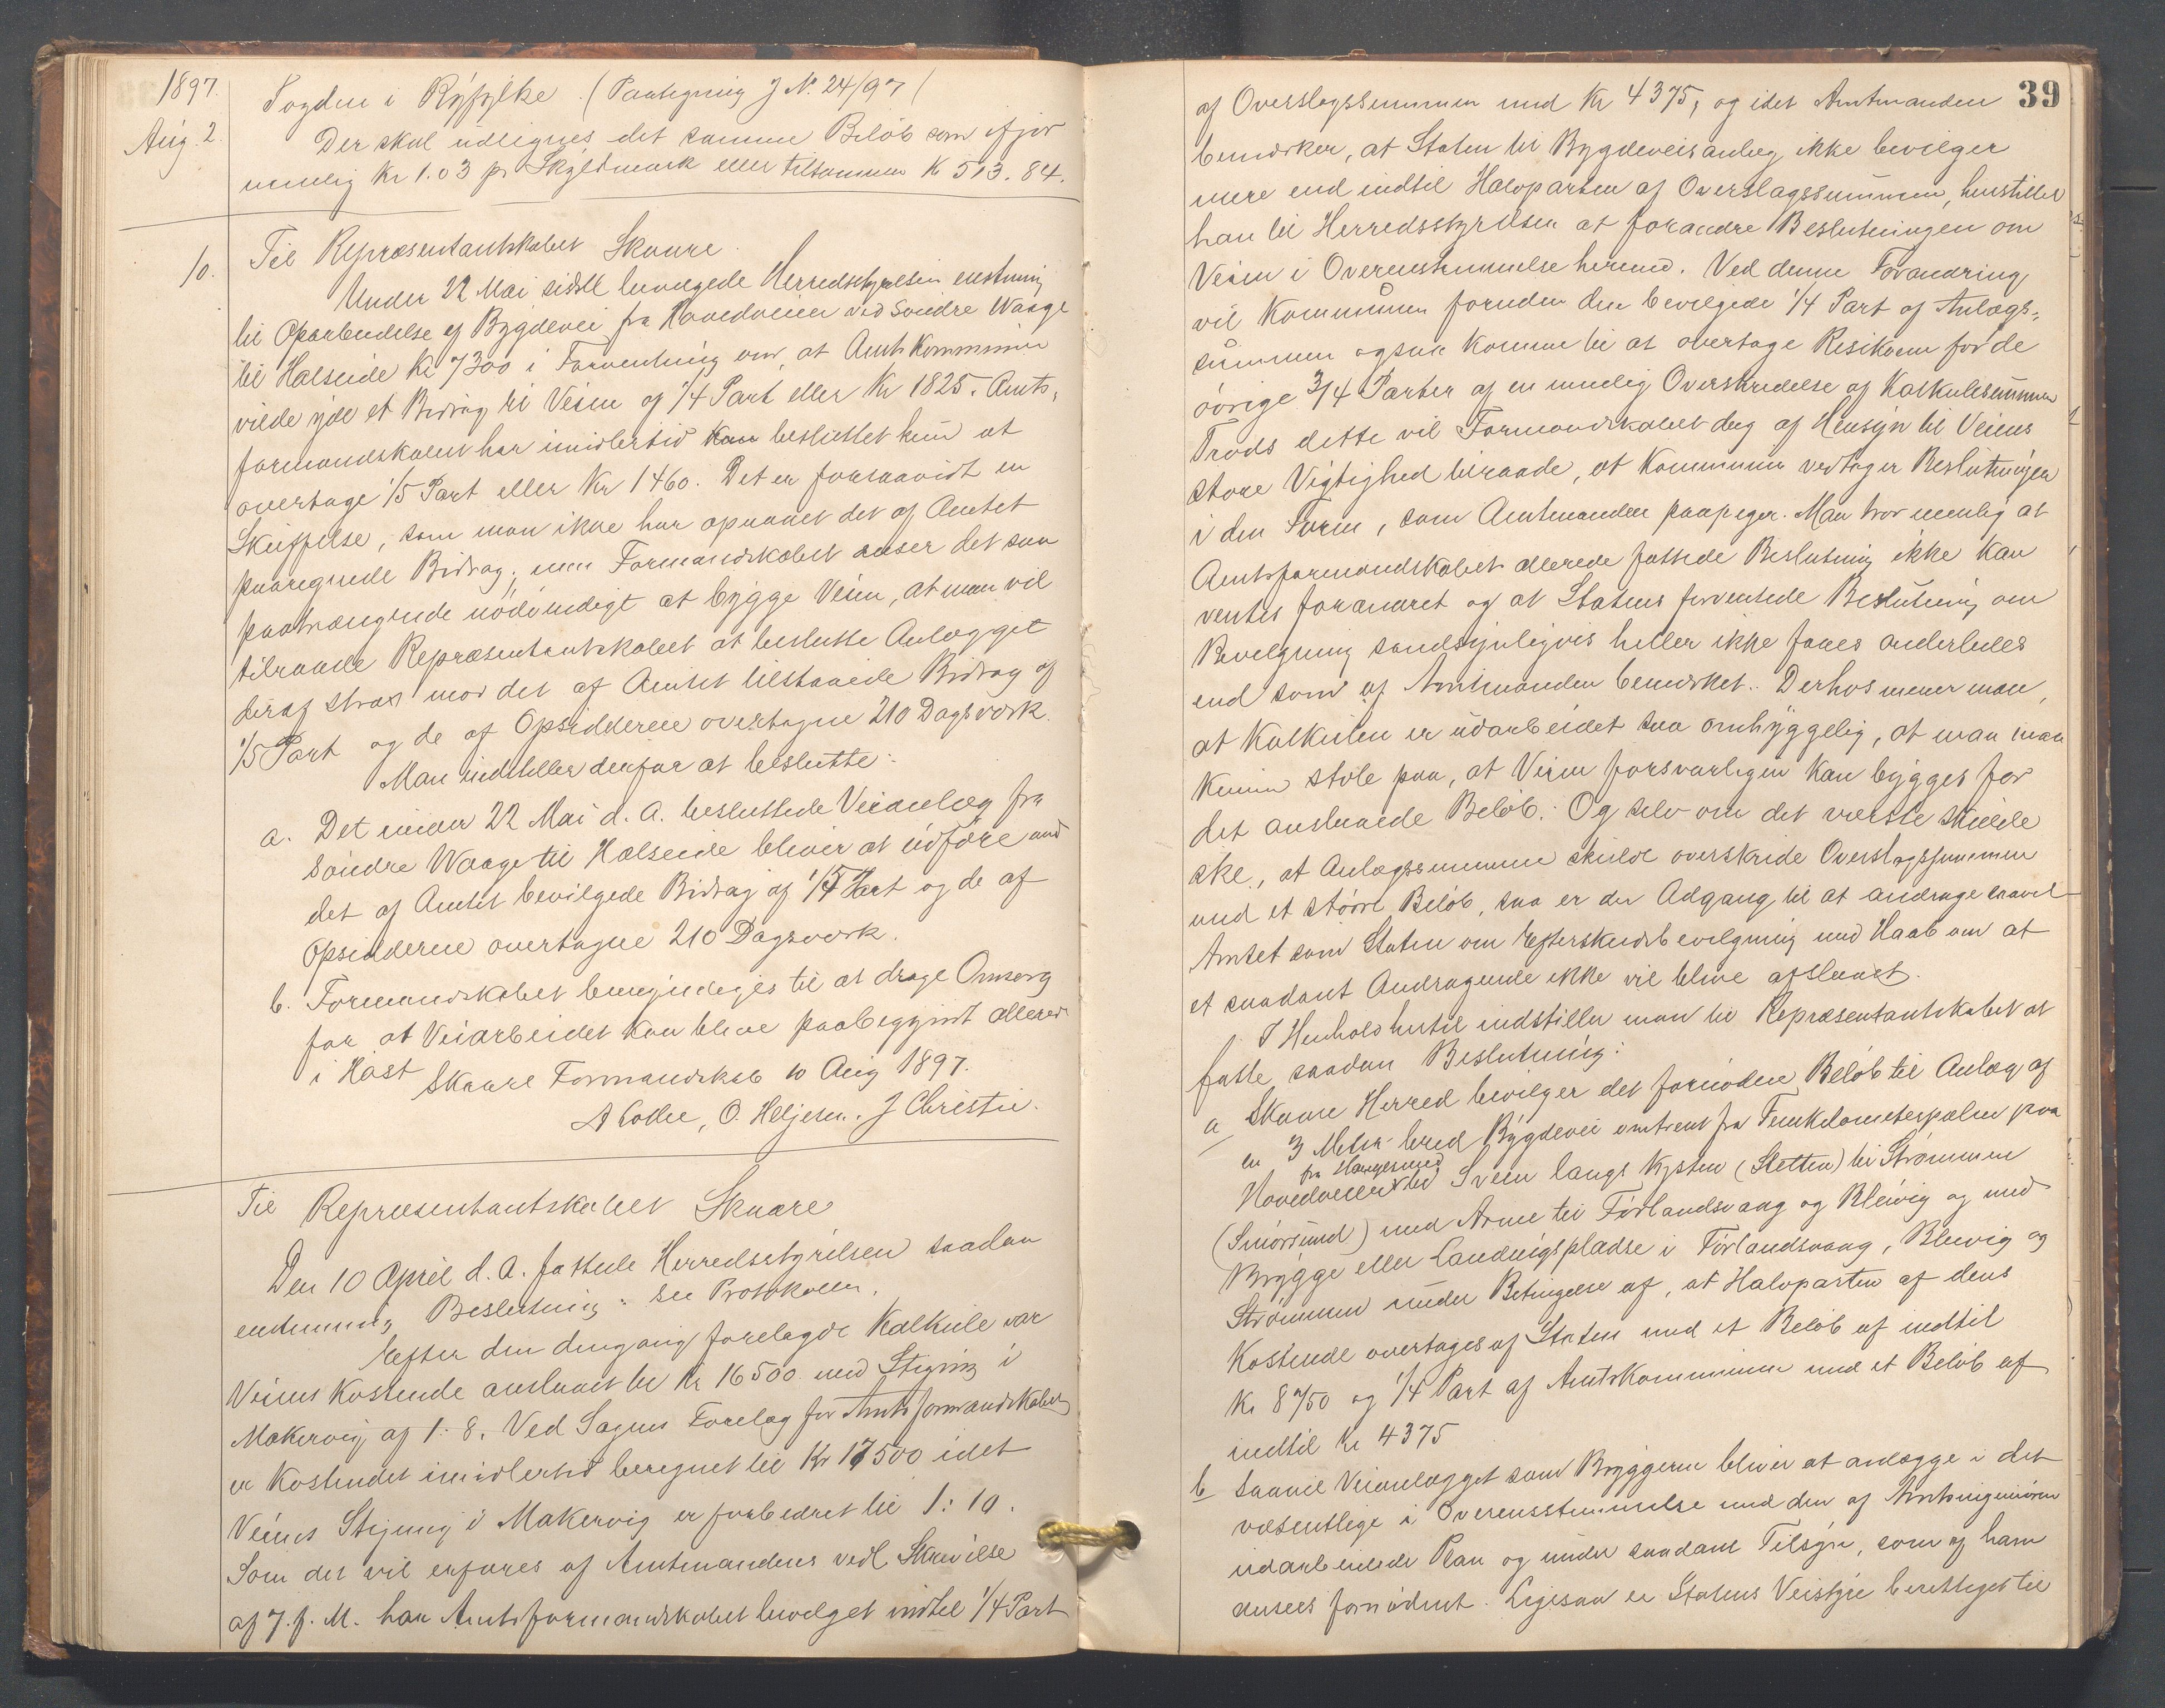 1897.
Aug. 2.
Fogden i Ryfylke. (Paategning J N. 24/97)
Der skal udlignes det samme Beløb som ifjor
nemlig Kr 1.03 pr Skyldmark eller tilsammen Kr 513.84.
10.
Til Repræsentantskabet Skaare.
Under 22 Mai sidstl bevilgede Herredsstyrelsen enstemig
til Oparbeidelse af Bygdevei fra Hovedveien ved Søndre Waage
til Halseide Kr 7300 i Forventning om, at Amtskommunen
vilde yde et Bidrag til Veien af 1/4 Part eller Kr 1825. Amts-
formandskabet har imidlertid kan besluttet kun at
overtage 1/5 Part eller Kr 1460. Det er forsaavidt en
Skuffelse, som man ikke har opnaaet det af Amtet
paaregnede Bidrag; men Formandskabet anser det saa
paatrængende nødvendigt at bygge Veien, at man vil
tilraade Repræsentantskabet at beslutte Anlægget
deraf strax mod det af Amtet tilstaaede Bidrag af
1/5 Part og de af Opsidderne overtagne 210 Dagsverk.
Man indstiller derfor at beslutte:
a. Det under 22 Mai d. A. besluttede Veianlæg fra
Søndre Waage til Halseide bliver at udføre med
det af Amtet bevilgede Bidrag af 1/5 Part og de af
Opsidderne overtagne 210 Dagsverk.
b. Formandskabet bemyndiges til at drage Omsorg
for at Veiarbeidet kan blive paabegyndt allerede
i Høst
Skaare Formandskab 10 Aug 1897.
O. Heljesen. J Christie.
Til Repræsentantskabet Skaare
Den 10 April d. A. fattede Herredsstyrelsen saadan
enstemmig Beslutning: see Protokollen.
Efter den dengang forelagde Kalkule var
Veiens Kostende anslaaet til Kr 16500 med Stigning i
Makervig af 1:8. Ved Sagens Forelæg for Amtsformandskabet
er Kostendet imidlertid beregnet til Kr 17500 idet
Veiens Stigning i Makervig er forbedret til 1:10.
Som det vil erfares af Amtmandens vedl Skrivelse
af 7. f. M. har Amtsformandskabet bevilget indtil 1/4 Part
39
af Overslagssummen med Kr 4375, og idet Amtmanden
bemærker, at Staten til Bygdeveisanlæg ikke bevilger
mere end indtil Halvparten af Overslagssummen, henstiller
han til Herredsstyrelsen at forandre Beslutningen om
Veien i Overensstemmelse hermed. Ved denne Forandring
vil Kommunen foruden den bevilgede 1/4 Part af Anlægs-
summen ogsaa komme til at overtage Risikoen for de
øvrige 3/4 Parter af en mulig Overskridelse af Kalkulesummen
Trods dette vil Formandskabet dog af Hensyn til Veiens
store Vigtighed tilraade, at Kommunen vedtager Beslutningen
i den Form, som Amtmanden paapeger. Man tror nemlig at
Amtsformandskabets allerede fattede Beslutning ikke kan
ventes forandret og at Statens forventede Beslutning om
Bevilgning sandsynligvis heller ikke faaes anderledes
end som af Amtmanden bemærket. Derhos mener man,
at Kalkulen er udarbeidet saa omhyggelig, at man maa
kunne stole paa, at Veien forsvarligen kan bygges for
det anslaaede Beløb. Og selv om det værste skulde
ske, at Anlægssummen skulde overskride Overslagssummen
med et større Beløb, saa er der Adgang til at andrage saavel
Amtet som Staten om Efterskudsbevilgning med Haab om at
et saadant Andragende ikke vil blive afslaaet.
I Henhold hertil indstiller man til Repræsentantskabet at
fatte saadan Beslutning:
a Skaare Herred bevilger det fornødne Beløb til Anlæg af
en 3 Meter bred Bygdevei omtrent fra Femkilometerpælen paa
fra Haugesund
Hovedveien ved Sveen langs Kysten (Sletten) til Strømmen
(Smørsund) med Arme til Førlandsvaag og Kleivig og med
Brygge eller Landingspladse i Førlandsvaag, Kleivig og
Strømmen under Betingelse af, at Halvparten af dens
Kostende overtages af Staten med et Beløb af indtil
Kr 8750 og 1/4 Part af Amtskommunen med et Beløb af
indtil Kr 4375
b Saavel Veianlægget som Bryggerne bliver at anlægge i det
væsentlige i Overensstemmelse med den af Amtsingeniøren
udarbeidede Plan og under saadant Tilsyn, som af ham
ansees fornødent. Ligesaa er Statens Veistyre berettiget til